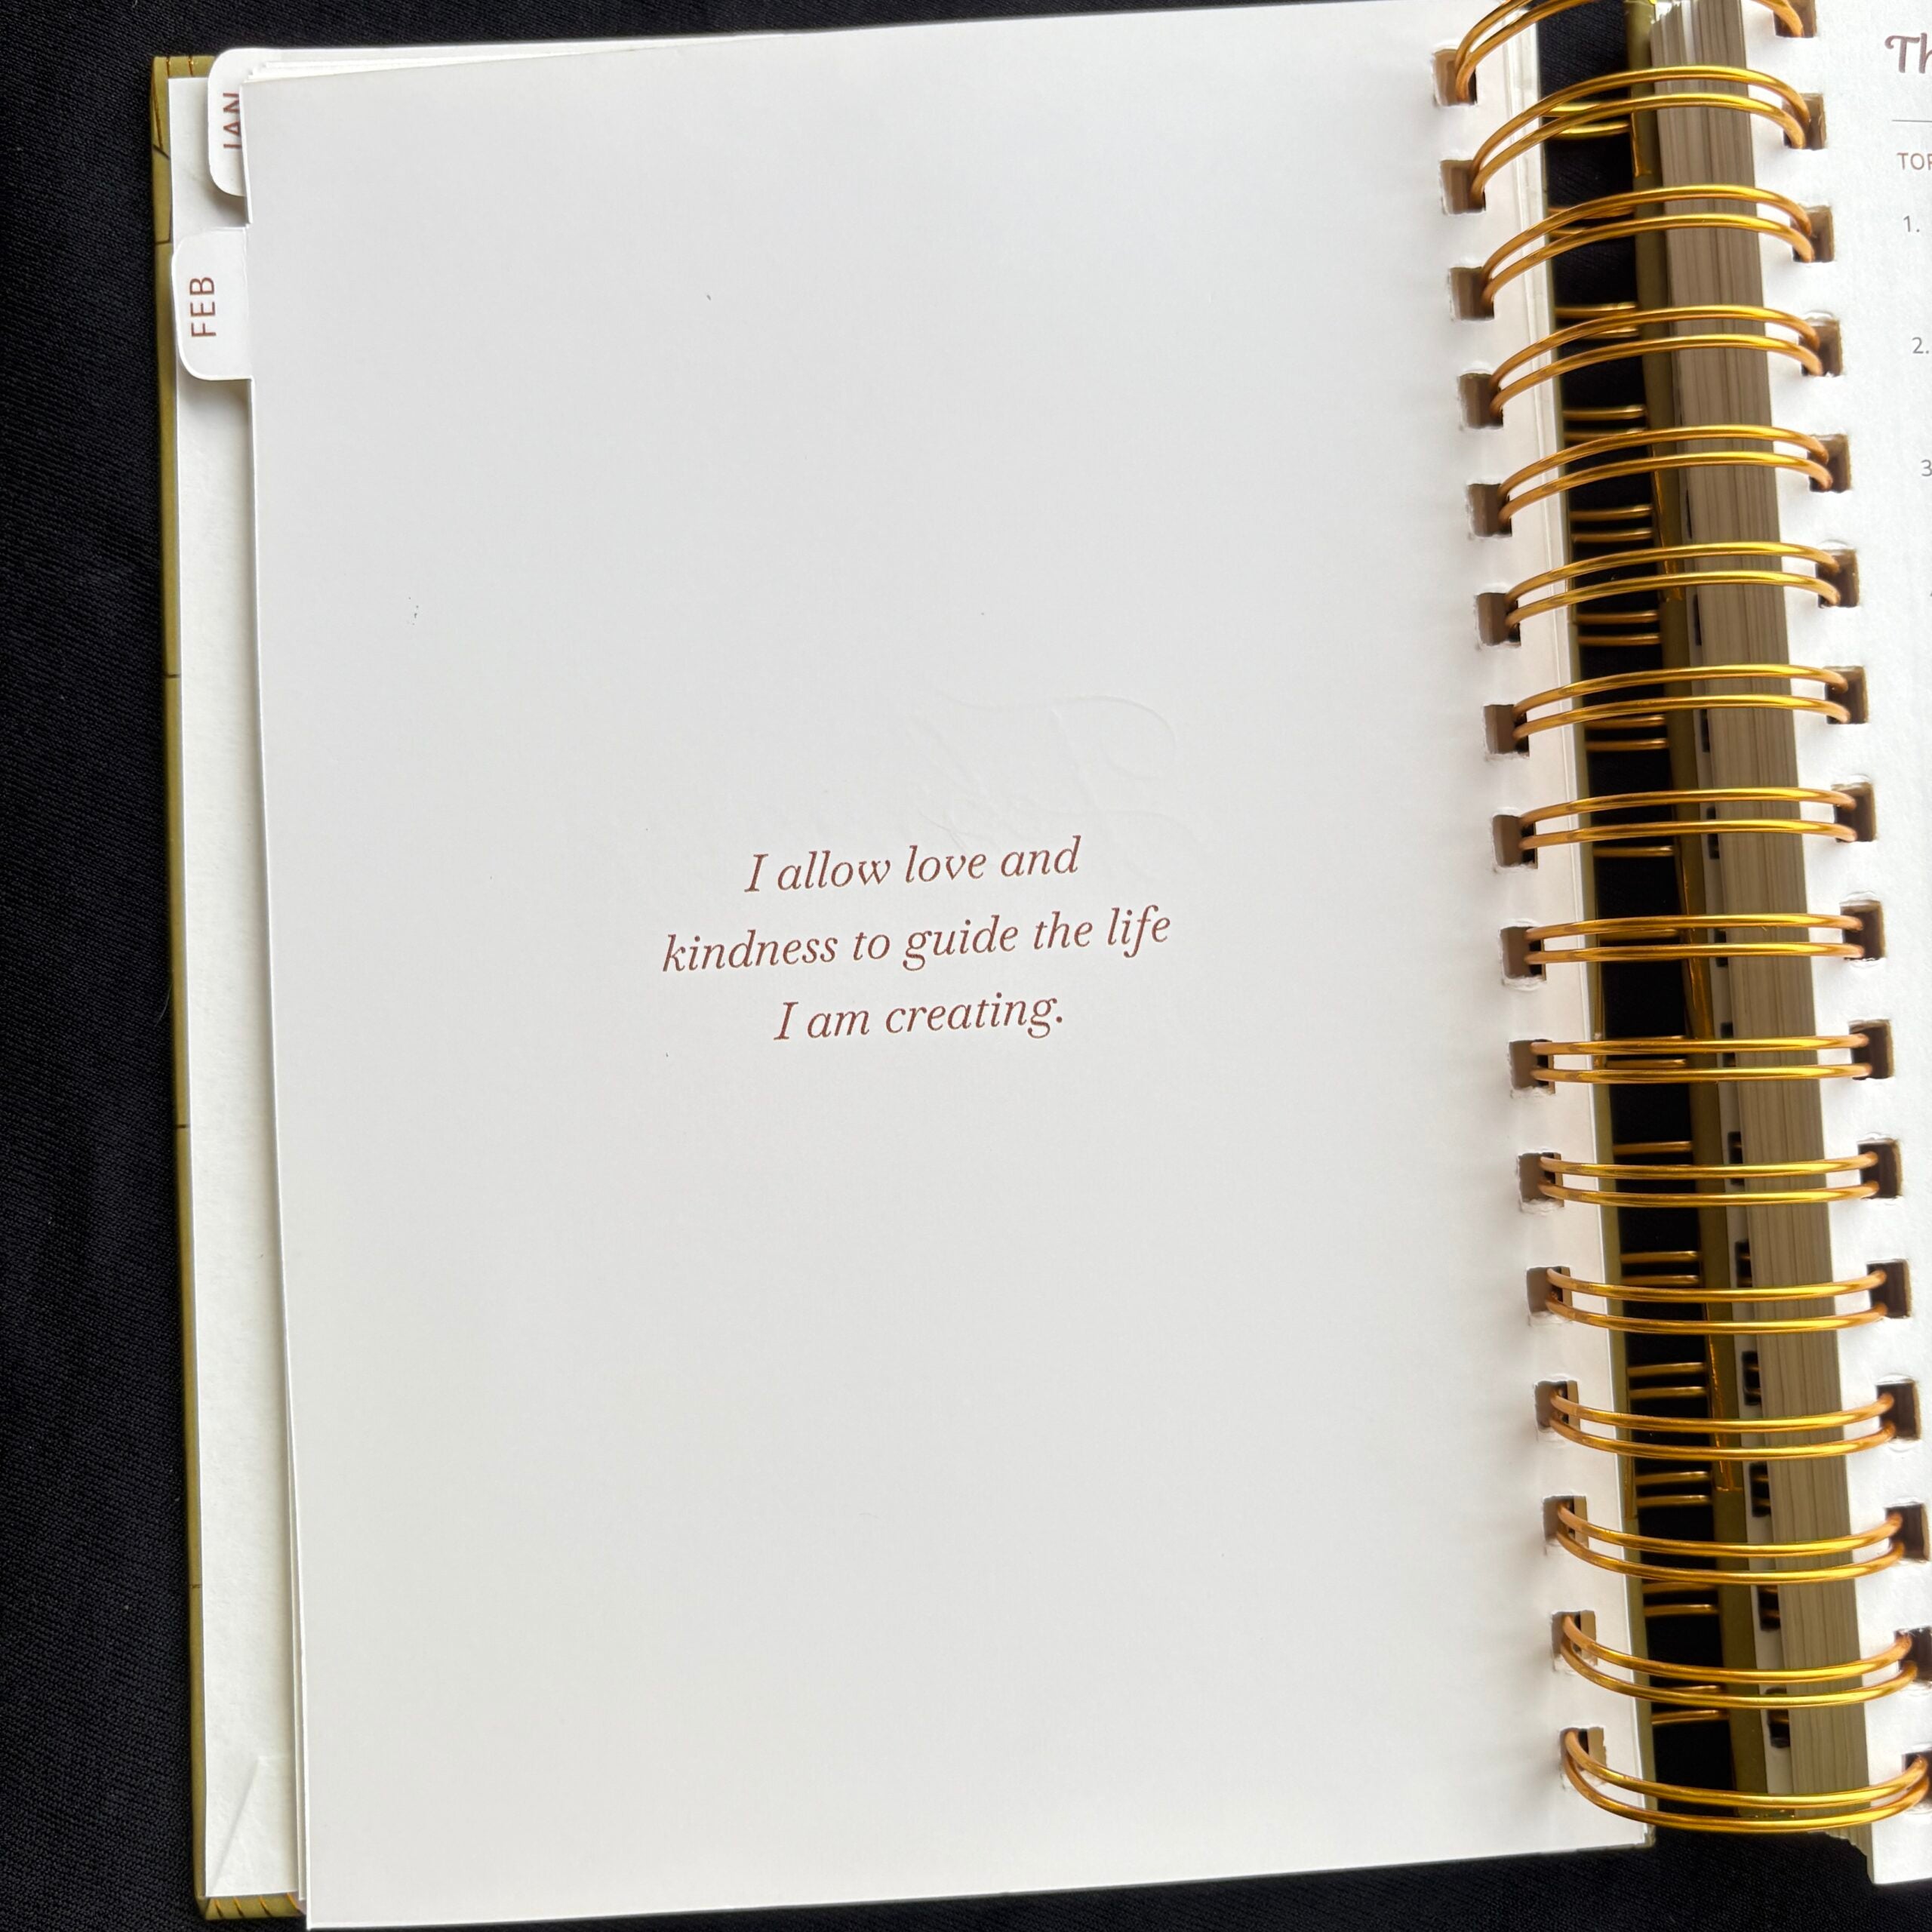 JAN
FEB
I allow love and
kindness to guide the life
I am creating.
Th
TOP
1.
2.
3